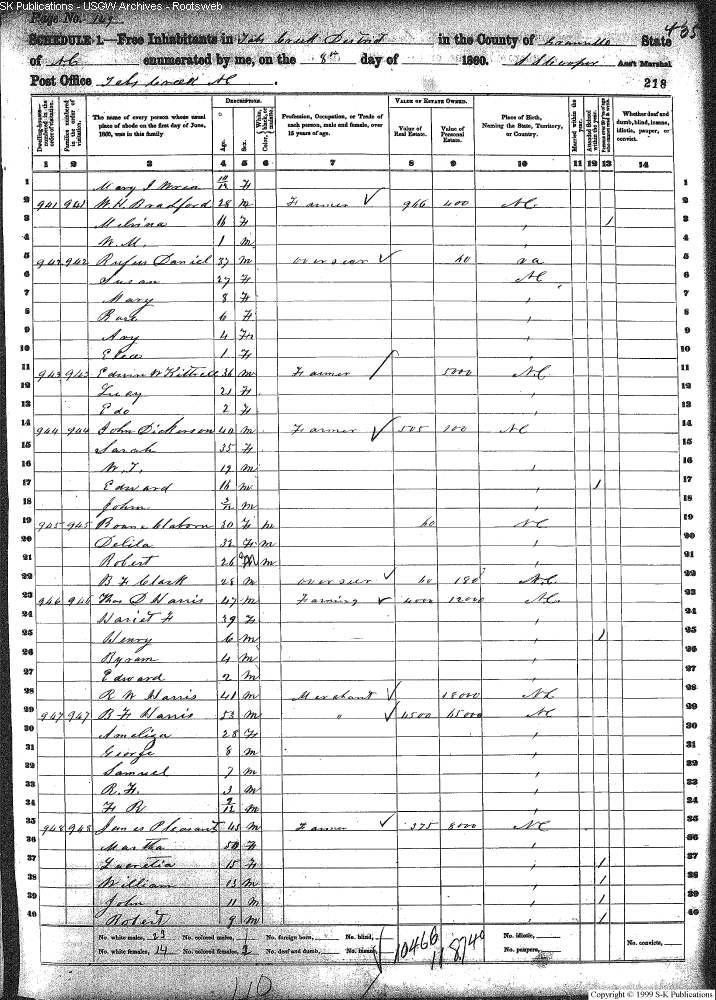 SK Publications - USGW Archives - Rootsweb
Page No. 149
435
SCHEDULE 1.—Free Inhabitants in Tabs Creek District in the County of Granville State
of NC enumerated by me, on the 8th day of 1860. Ass't Marshal
Post Office Tabs Creek NC. 218
Dwelling-houses—numbered in the order of visitation.
Families numbered in the order of visitation.
The name of every person whose usual place of abode on the first day of June, 1860, was in this family
DESCRIPTION.
Age. Sex. Color, White, black, or mulatto.
Profession, Occupation, or Trade of each person, male and female, over 15 years of age.
VALUE OF ESTATE OWNED.
Value of Real Estate. Value of Personal Estate.
Place of Birth, Naming the State, Territory, or Country.
Married within the year. Attended School within the year.
Whether deaf and dumb, blind, insane, idiotic, pauper, or convict.
1 2 3 4 5 6 7 8 9 10 11 12 13 14
1 Mary J Wren 10/12 F 1
2 941 941 W. H. Bradford 28 m Farmer √ 966 400 NC 2
3 Melvina 16 F , / 3
4 W. M. 1 m , 4
5 942 942 Rufus Daniel 37 m overseer √ 60 va 5
6 Susan 27 F NC 6
7 Mary 8 F , 7
8 6 F , 8
9 4 F , 9
10 1 F , 10
11 943 943 Edwin W Kittrell 36 m Farmer 5000 NC 11
12 Lucy 21 F , 12
13 Edo 2 F , 13
14 944 944 John Dickerson 40 m Farmer √ 505 700 NC 14
15 Sarah 35 F 15
16 W. T. 19 m , 16
17 Edward 16 m , / 17
18 John m , 18
19 945 945 30 F m 60 NC 19
20 Delila 32 F m , 20
21 Robert 26 m m , 21
22 B F Clark 28 m overseer √ 60 180 NC 22
23 946 946 Thos D Harris 47 m Farming √ 4000 12000 NC 23
24 Hariet F 39 F , 24
25 Henry 6 m , / 25
26 Byram 4 m , 26
27 Edward 2 m , 27
28 R W Harris 41 m Merchant √ 18000 NC 28
29 947 947 B F Harris 53 m " √ 4500 65000 NC 29
30 Ameliza 28 F , 30
31 George 8 m , 31
32 Samuel 7 m , 32
33 R. H. 3 m , 33
34 F R 9/12 m , 34
35 948 948 James Pleasant 45 m Farmer √ 375 8000 NC 35
36 Martha 50 F , 36
37 Lucretia 15 F , / 37
38 William 13 m , / 38
39 John 11 m , / 39
40 Robert 9 m , / 40
No. white males, 23 No. colored males, 1 No. foreign born, No. blind, No. idiotic, No. convicts,
No. white females, 14 No. colored females, 2 No. deaf and dumb, No. insane, No. paupers,
10466 118740
110
Copyright © 1999 S-K Publications